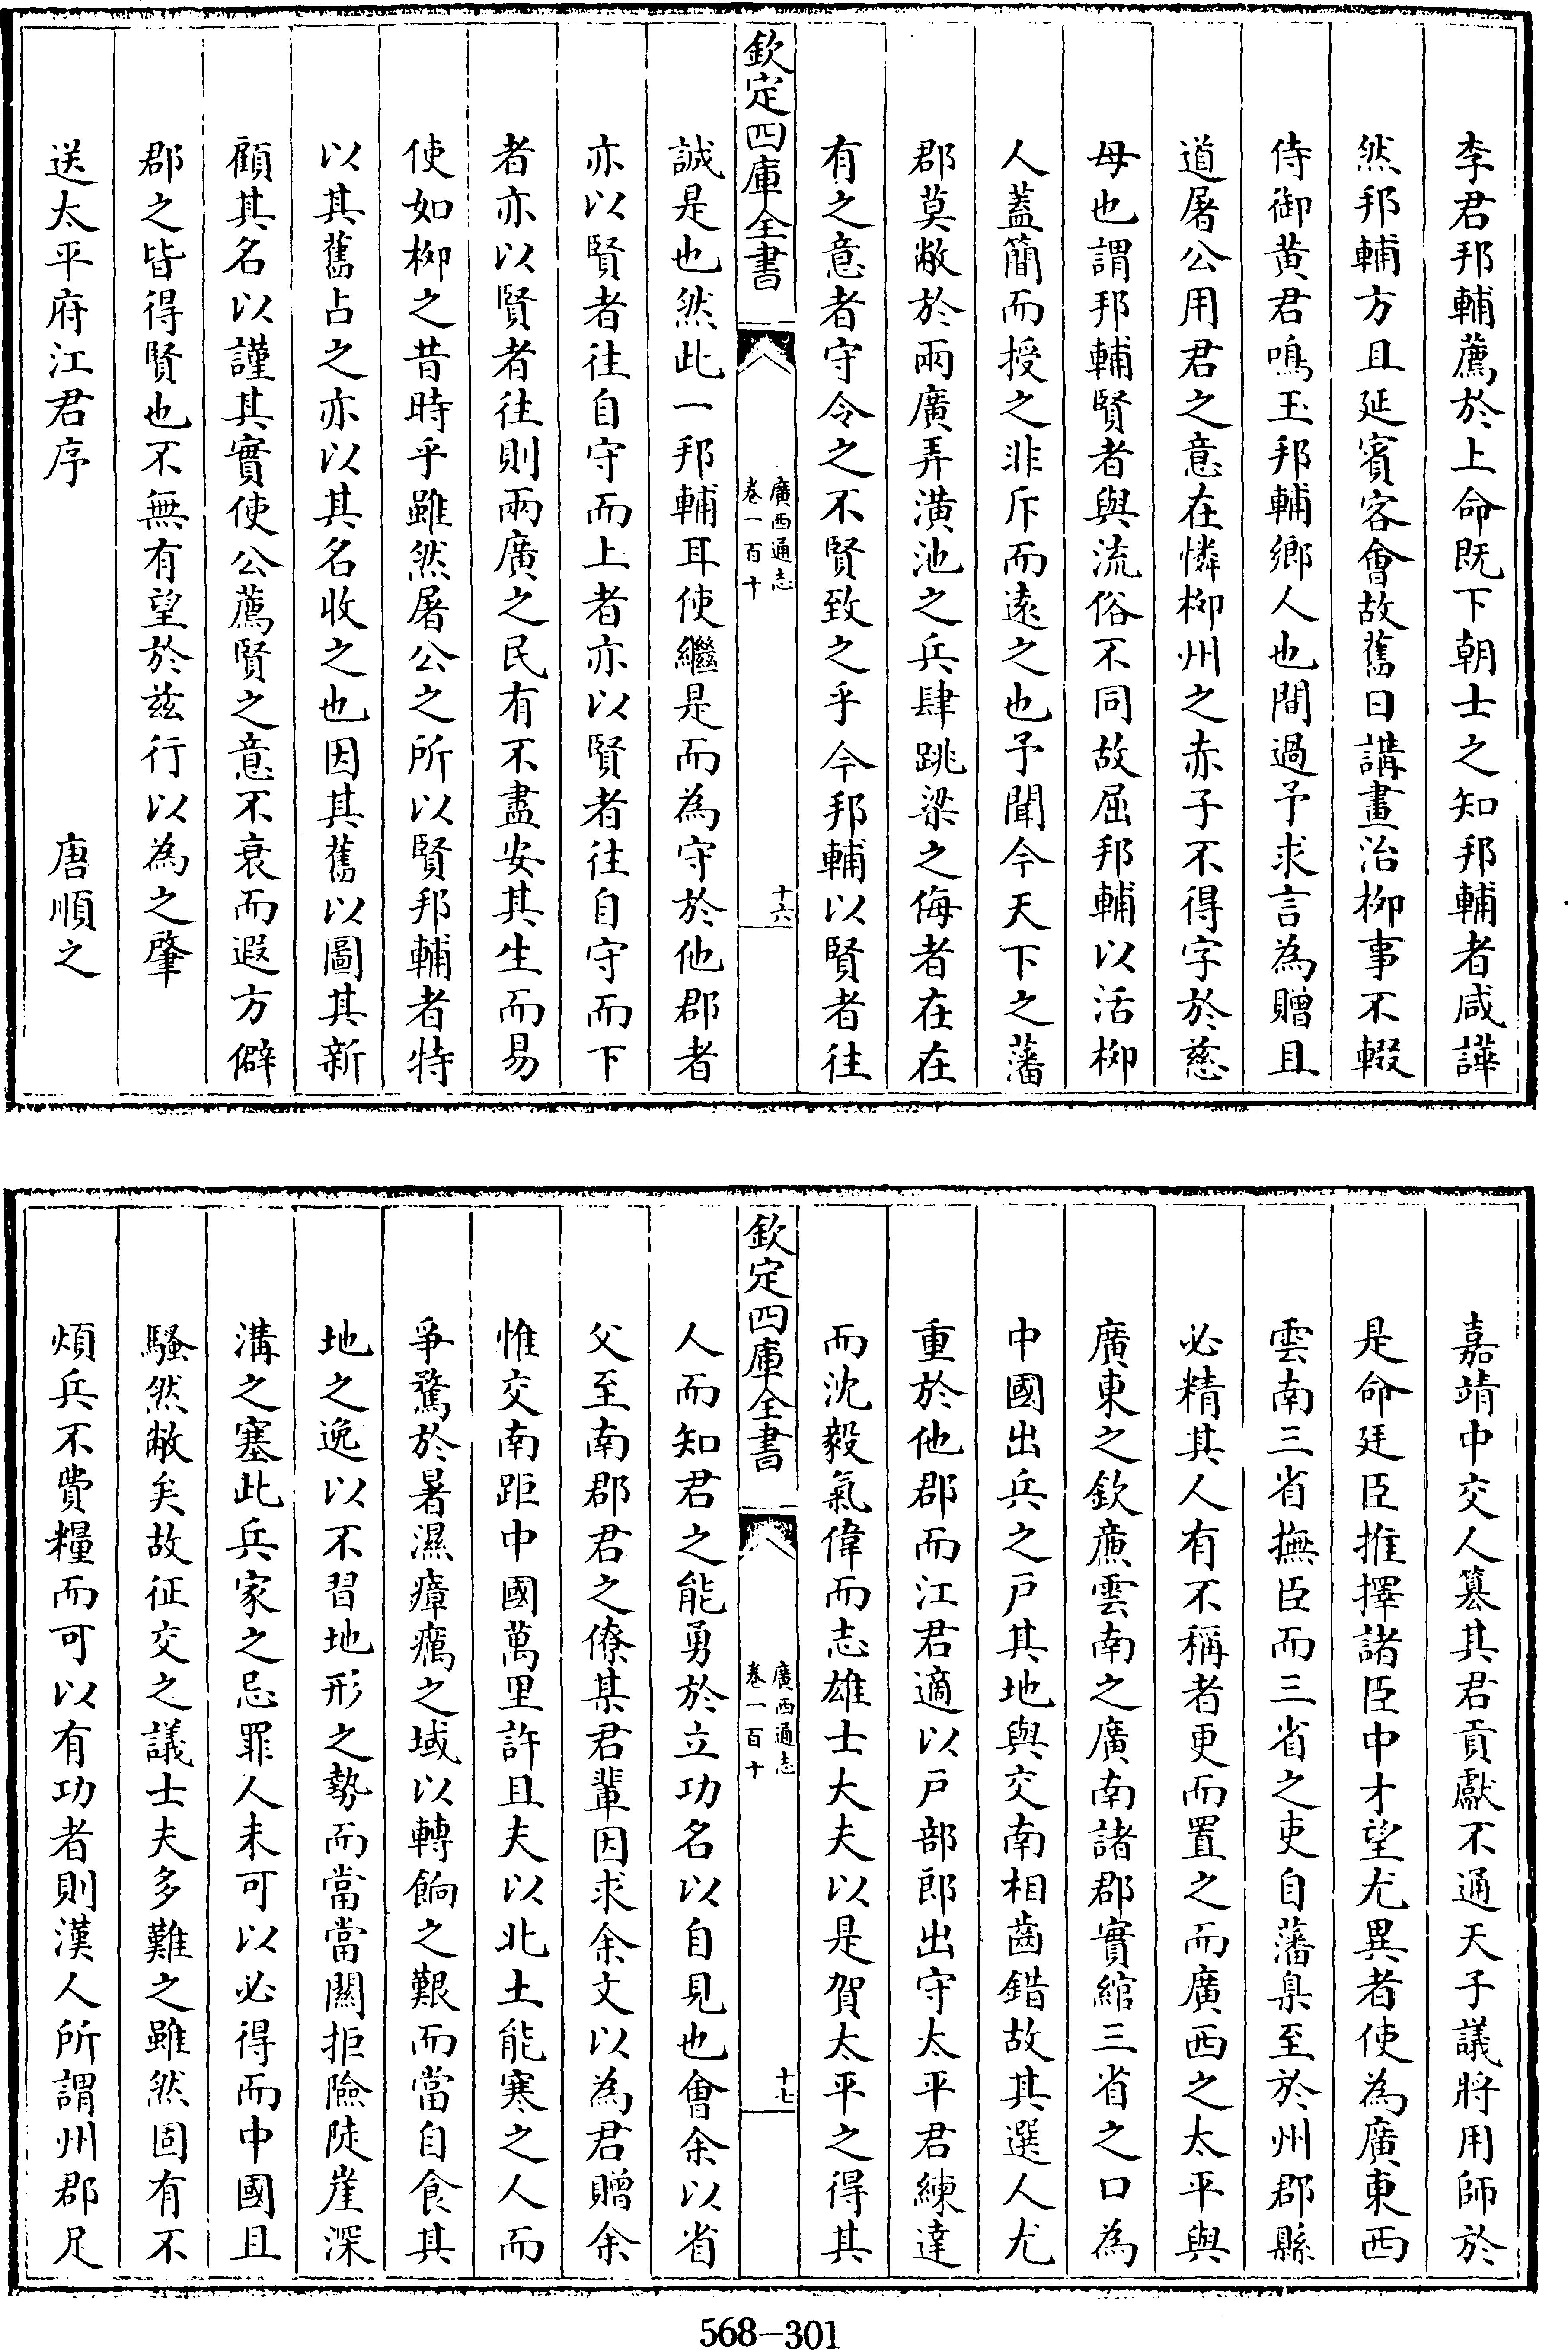 李君邦輔薦於上命既下朝士之知邦輔者咸譁
然邦輔方且延賓客會故舊日講畫治栁事不輟
侍御黄君鳴玉邦輔鄉人也間過予求言為贈且
道屠公用君之意在憐栁州之赤子不得字於慈
母也謂邦輔賢者與流俗不同故屈邦輔以活栁
人蓋簡而授之非斥而逺之也予聞今天下之藩
郡莫敝於兩廣弄潢池之兵肆跳梁之侮者在在
有之意者守令之不賢致之乎今邦輔以賢者往
欽定四庫全書
廣西通志
卷一百十
十六
誠是也然此一邦輔耳使繼是而為守於他郡者
亦以賢者往自守而上者亦以賢者往自守而下
者亦以賢者往則兩廣之民有不盡安其生而易
使如栁之昔時乎雖然屠公之所以賢邦輔者特
以其舊占之亦以其名收之也因其舊以圖其新
顧其名以謹其實使公薦賢之意不衰而遐方僻
郡之皆得賢也不無有望於兹行以為之肇
送太平府江君序 唐順之
嘉靖中交人簒其君貢獻不通天子議將用師於
是命廷臣推擇諸臣中才望尤異者使為廣東西
雲南三省撫臣而三省之吏自藩臬至於州郡縣
必精其人有不稱者更而置之而廣西之太平與
廣東之欽廉雲南之廣南諸郡實綰三省之口為
中國出兵之戸其地與交南相齒錯故其選人尤
重於他郡而江君適以戸部郎出守太平君練達
而沈毅氣偉而志雄士大夫以是賀太平之得其
欽定四庫全書
廣西通志
卷一百十
十七
人而知君之能勇於立功名以自見也會余以省
父至南郡君之僚某君輩因求余文以為君贈余
惟交南距中國萬里許且夫以北土能寒之人而
爭騖於暑濕瘴癘之域以轉餉之艱而當自食其
地之逸以不習地形之勢而當當關拒險陡崖深
溝之塞此兵家之忌罪人未可以必得而中國且
騷然敝矣故征交之議士夫多難之雖然固有不
煩兵不費糧而可以有功者則漢人所謂州郡足
568-301